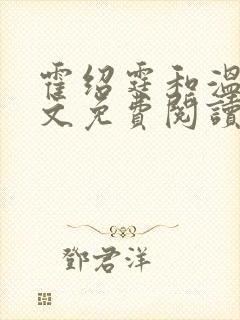 霍绍霆和温
文免費閱讀
鄧君洋